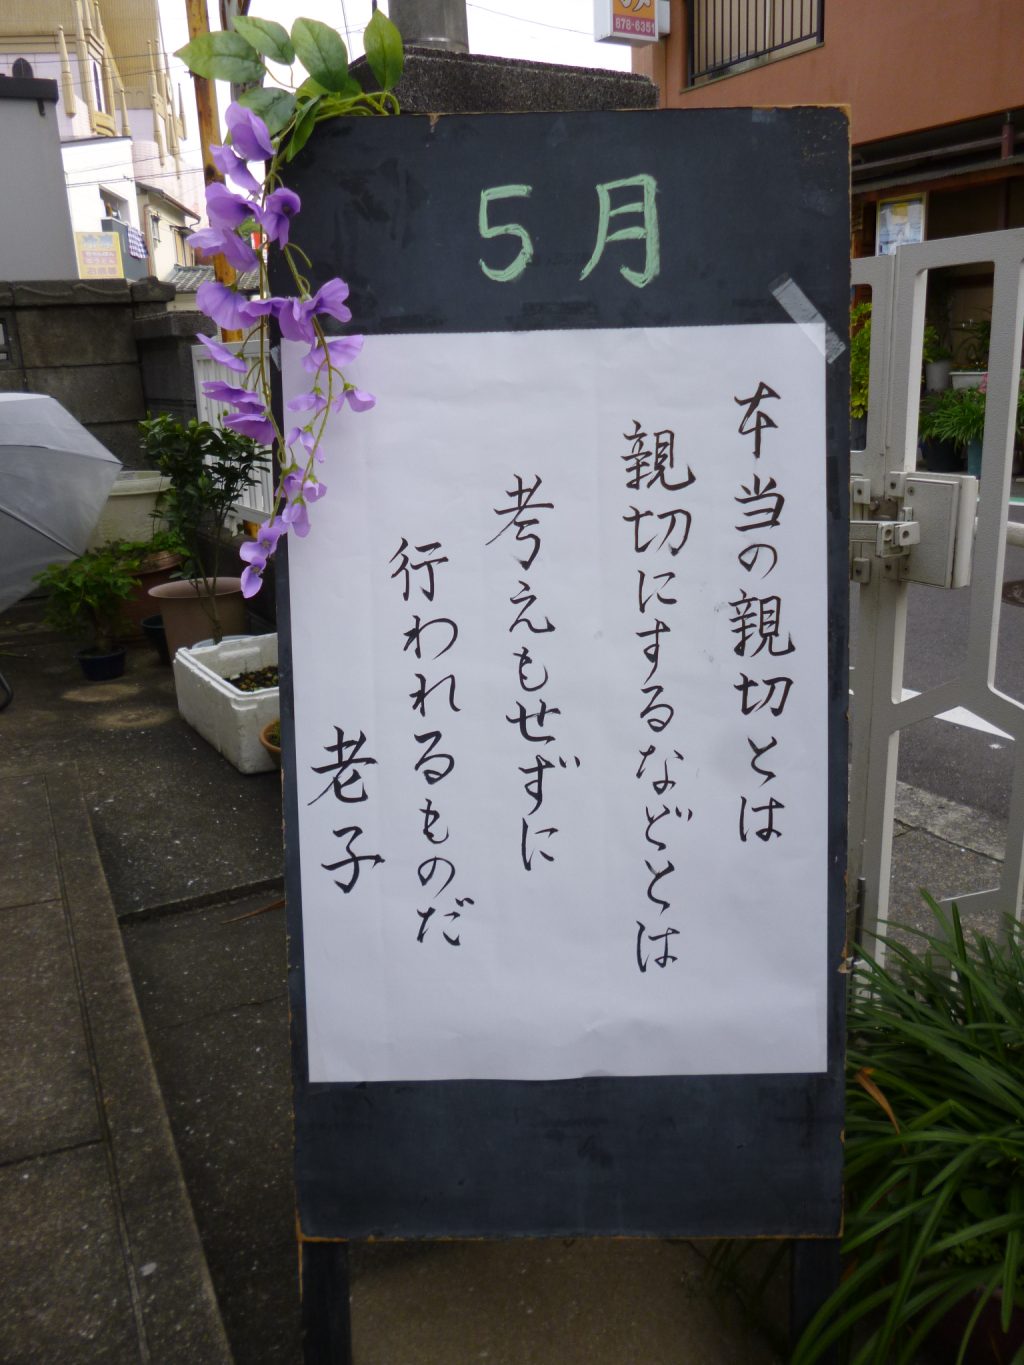 5月
本当の親切とは
親切にするなどとは
考えもせずに
行われるものだ
老子
878-6351